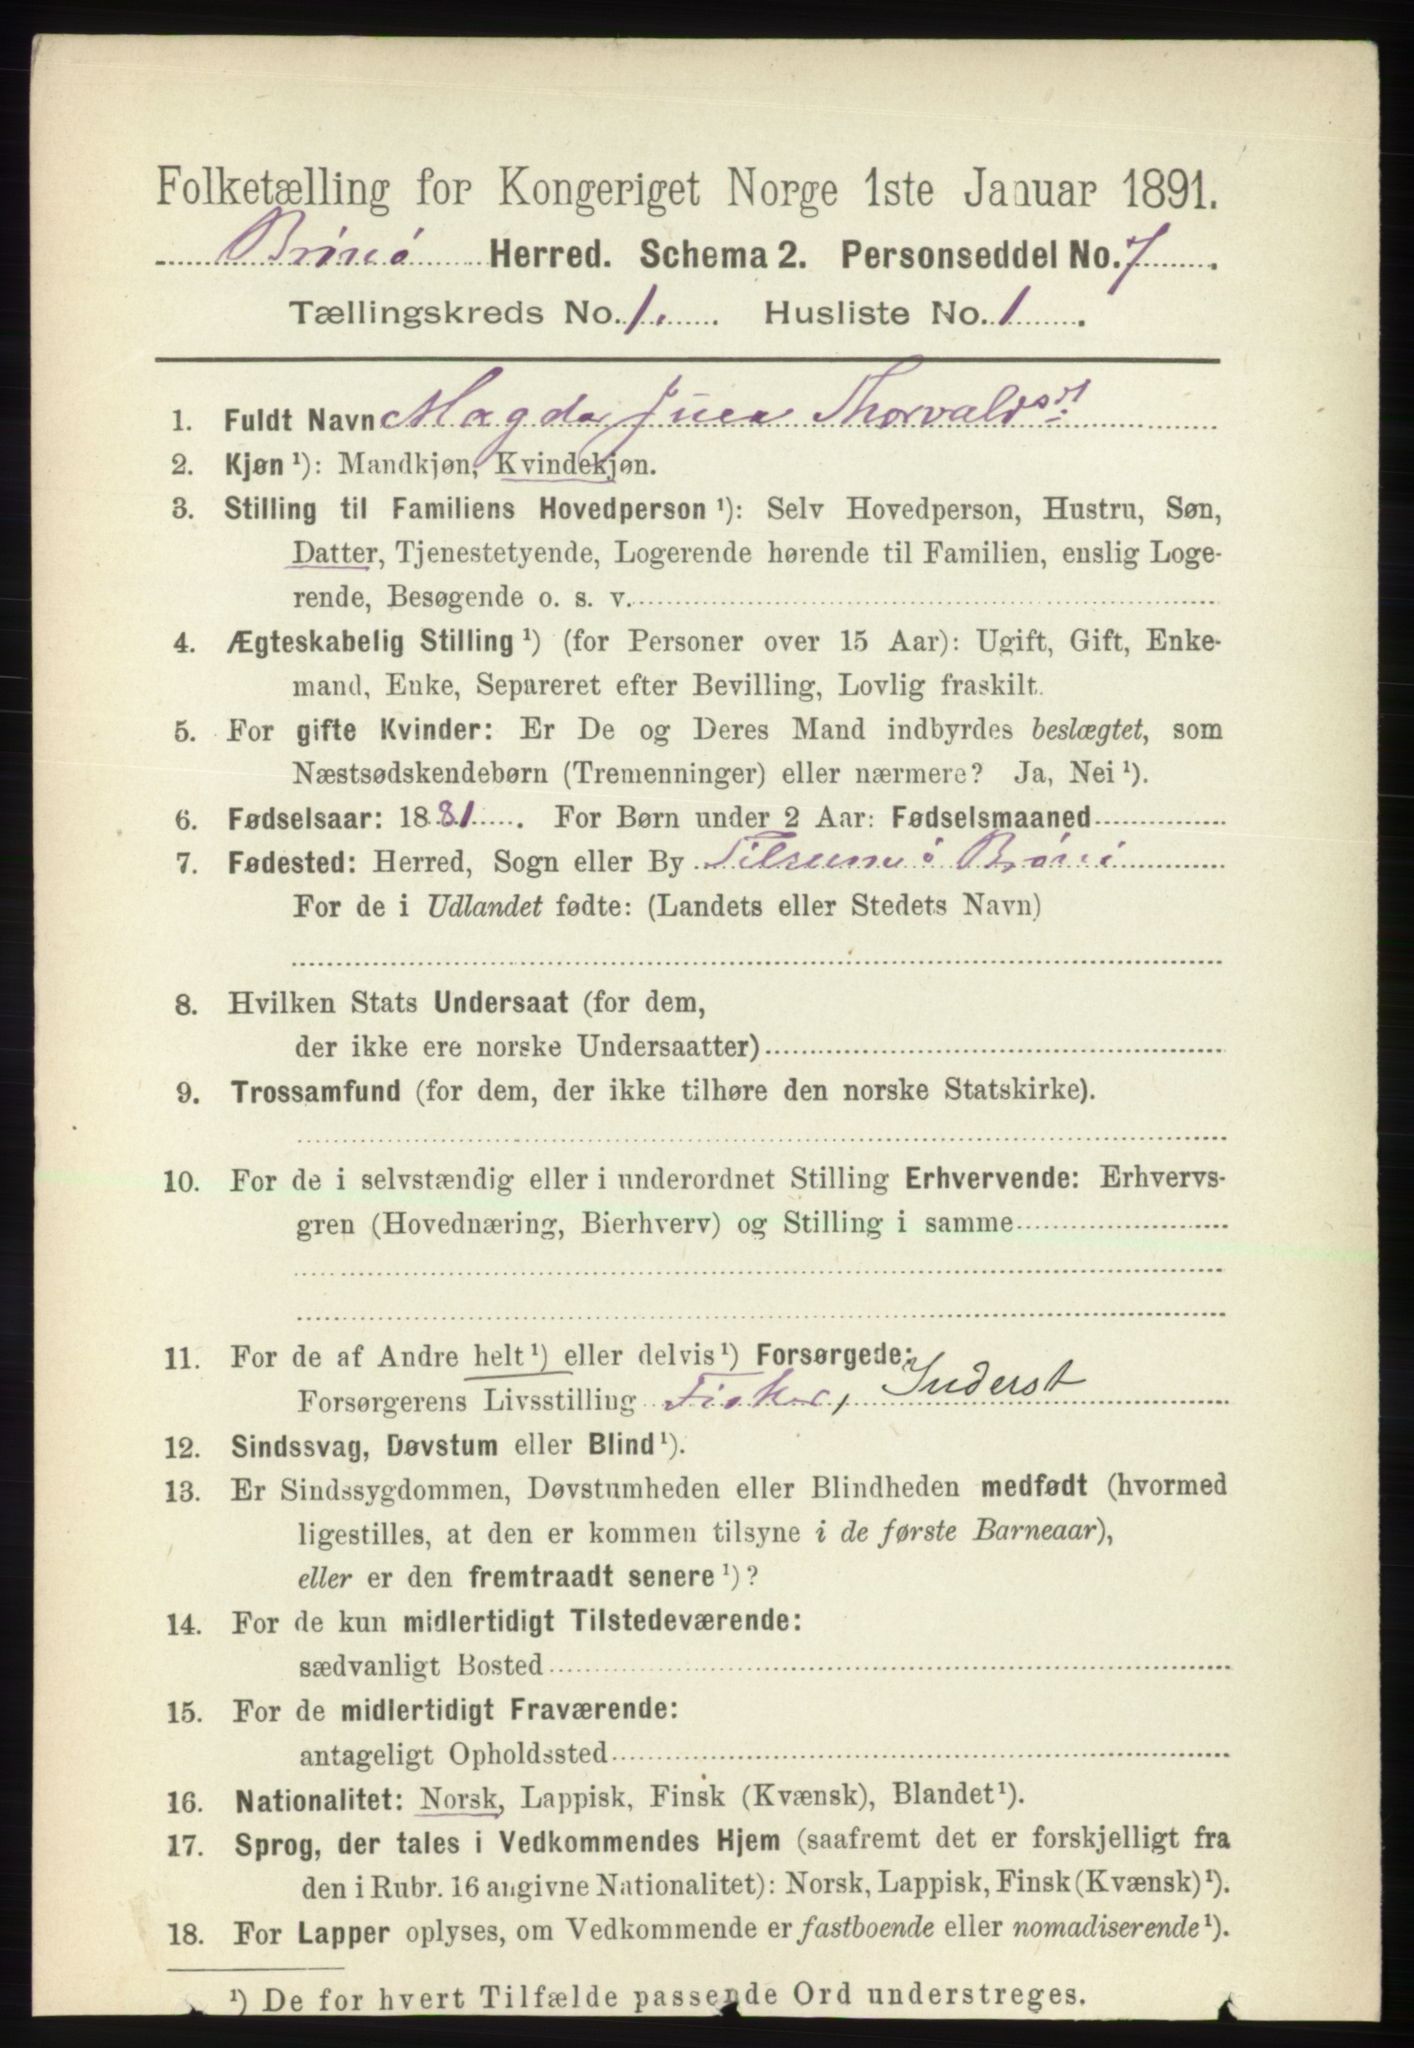 Folketælling for Kongeriget Norge 1ste Januar 1891.
Brönö Herred. Schema 2. Personseddel No. 7.
Tællingskreds No. 1. Husliste No. 1.
1. Fuldt Navn Magda Thorvaldsdt.
2. Kjøn ¹): Mandkjøn, Kvindekjøn.
3. Stilling til Familiens Hovedperson ¹): Selv Hovedperson, Hustru, Søn,
Datter, Tjenestetyende, Logerende hørende til Familien, enslig Loge-
rende, Besøgende o. s. v.
4. Ægteskabelig Stilling ¹) (for Personer over 15 Aar): Ugift, Gift, Enke-
mand, Enke, Separeret efter Bevilling, Lovlig fraskilt.
5. For gifte Kvinder: Er De og Deres Mand indbyrdes beslægtet, som
Næstsødskendebørn (Tremenninger) eller nærmere? Ja, Nei ¹).
6. Fødselsaar: 1881. For Børn under 2 Aar: Fødselsmaaned
7. Fødested: Herred, Sogn eller By Brönö
For de i Udlandet fødte: (Landets eller Stedets Navn)
8. Hvilken Stats Undersaat (for dem,
der ikke ere norske Undersaatter)
9. Trossamfund (for dem, der ikke tilhøre den norske Statskirke).
10. For de i selvstændig eller i underordnet Stilling Erhvervende: Erhvervs-
gren (Hovednæring, Bierhverv) og Stilling i samme
11. For de af Andre helt ¹) eller delvis ¹) Forsørgede:
Forsørgerens Livsstilling Fisker, Inderst
12. Sindssvag, Døvstum eller Blind ¹).
13. Er Sindssygdommen, Døvstumheden eller Blindheden medfødt (hvormed
ligestilles, at den er kommen tilsyne i de første Barneaar),
eller er den fremtraadt senere ¹)?
14. For de kun midlertidigt Tilstedeværende:
sædvanligt Bosted
15. For de midlertidigt Fraværende:
antageligt Opholdssted
16. Nationalitet: Norsk, Lappisk, Finsk (Kvænsk), Blandet ¹).
17. Sprog, der tales i Vedkommendes Hjem (saafremt det er forskjelligt fra
den i Rubr. 16 angivne Nationalitet): Norsk, Lappisk, Finsk (Kvænsk) ¹).
18. For Lapper oplyses, om Vedkommende er fastboende eller nomadiserende ¹).
¹) De for hvert Tilfælde passende Ord understreges.